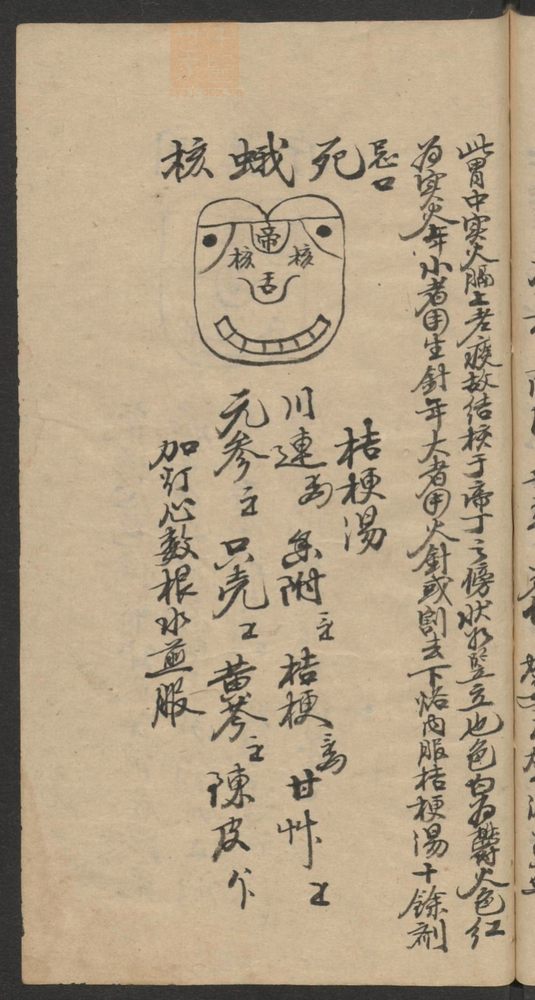 此胃中實火膈上老痰故结核于帝丁之傍状如竪立也色白为鬱火色红
为实火年小者用生針年大者用火針或割去下烙內服桔梗湯十餘剂
忌口
死蛾核
帝
核 核
舌
桔梗湯
川連 香附 桔梗 甘艸
元參 只壳 黄芩 陳皮
加灯心数根水煎服